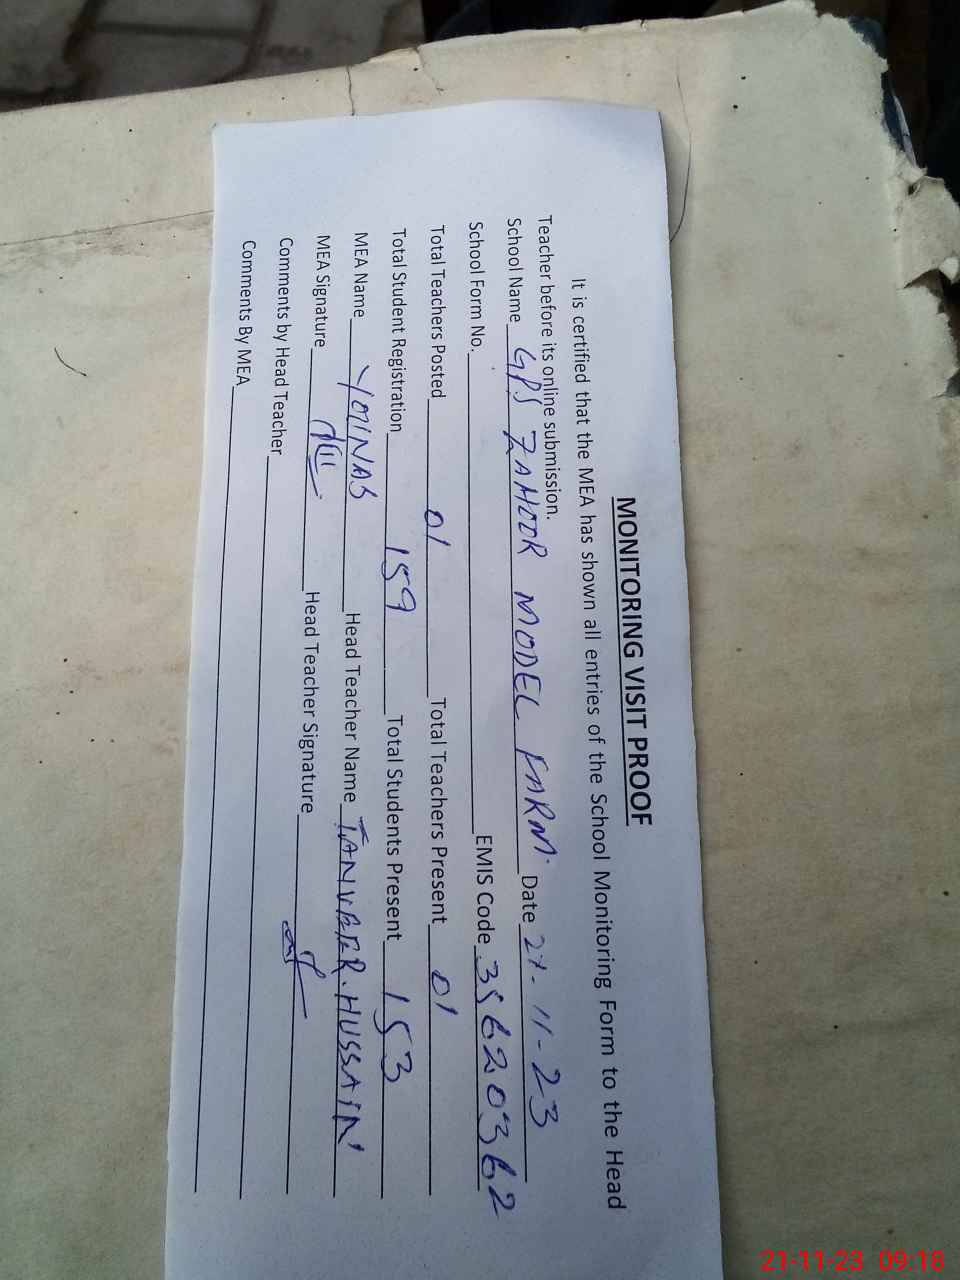 MONITORING VISIT PROOF
It is certified that the MEA has shown all entries of the School Monitoring Form to the Head
Teacher before its online submission.
School Name GPS ZAHOOR MODEL FARM. Date 21-11-23
School Form No. EMIS Code 35620362
Total Teachers Posted 01 Total Teachers Present 01
Total Student Registration 159 Total Students Present 153
MEA Name YOUNAS Head Teacher Name TANVEER HUSSAIN
MEA Signature Head Teacher Signature
Comments by Head Teacher
Comments By MEA
21-11-23 09:18